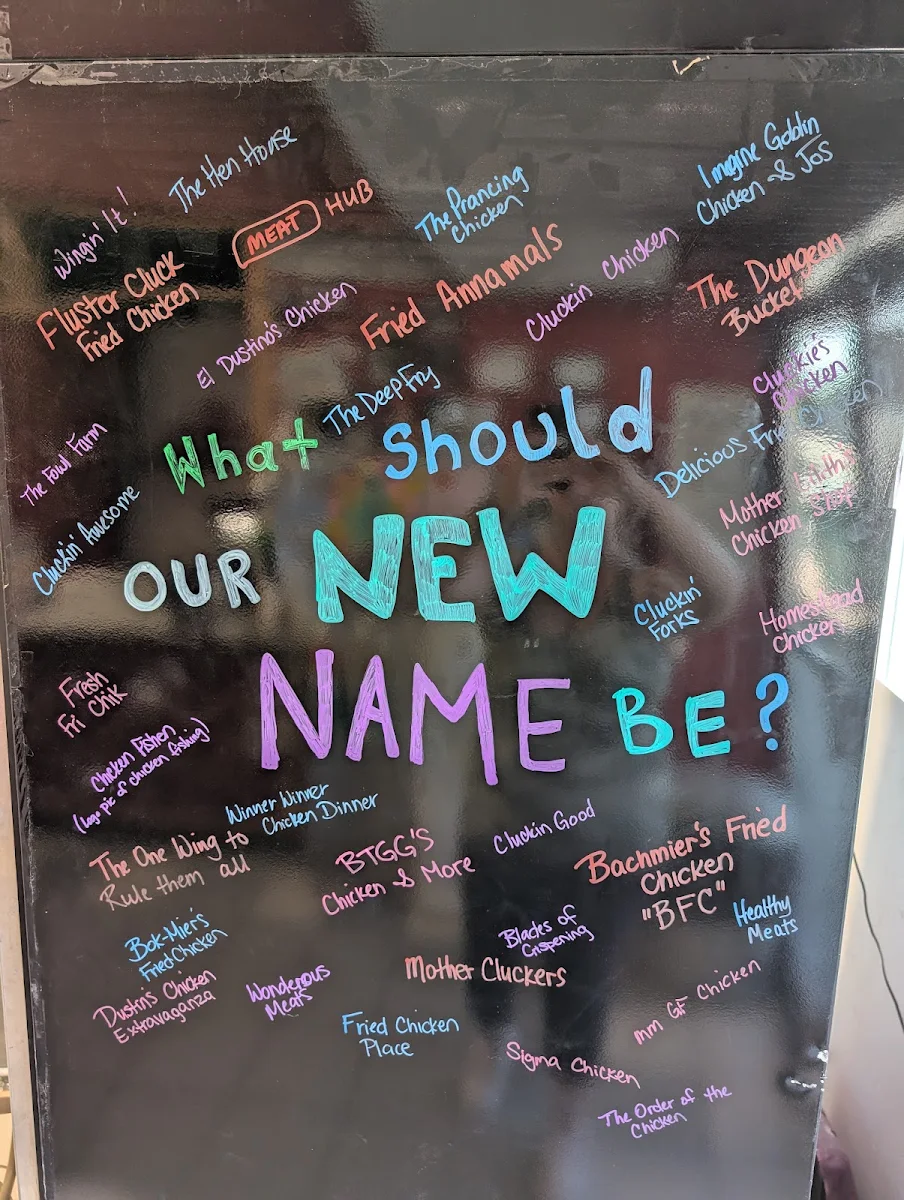 The Hen House
Wingin' It!
MEAT HUB
The Prancing
Chicken
Imagine Goblin
Chicken & Jos
Fluster Cluck
Fried Chicken
El Dustino's Chicken
Fried Annamals
Cluckin Chicken
The Dungeon
Bucket
Cluckie's
Chicken
The Deep Fry
Delicious Fried Chicken
The Fowl Farm
Cluckin' Awesome
What Should
OUR NEW
NAME BE?
Mother
Chicken
Cluckin'
Forks
Homestead
Chicken
Fresh
Fri Chik
Chicken Fishen
(logo pic of chicken fishing)
Winner Winner
Chicken Dinner
The One Wing to
Rule them all
BTGG'S
Chicken & More
Cluckin Good
Bachmier's Fried
Chicken
"BFC"
Healthy
Meats
Bok-Mier's
Fried Chicken
Blades of
Crispening
Mother Cluckers
Dustin's Chicken
Extravaganza
Wonderous
Meats
Fried Chicken
Place
mm GF Chicken
Sigma Chicken
The Order of the
Chicken